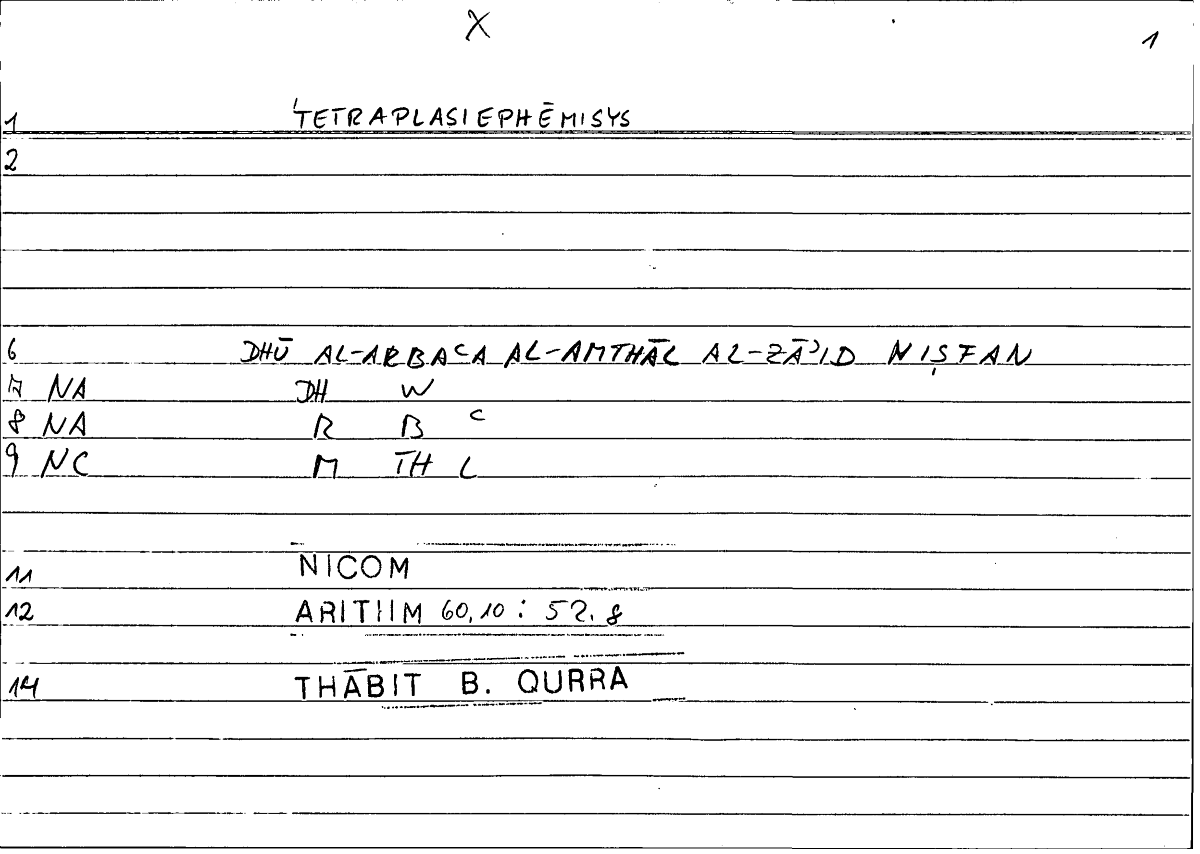 X
1
1 'TETRAPLASIEPHĒMISYS
2
6 DHŪ AL-ARBAᶜA AL-AMTHĀL AL-ZĀʾID NIṢFAN
7 NA DH W
8 NA R B ᶜ
9 NC M TH L
11 NICOM
12 ARITHM 60,10 : 52.8
14 THĀBIT B. QURRA